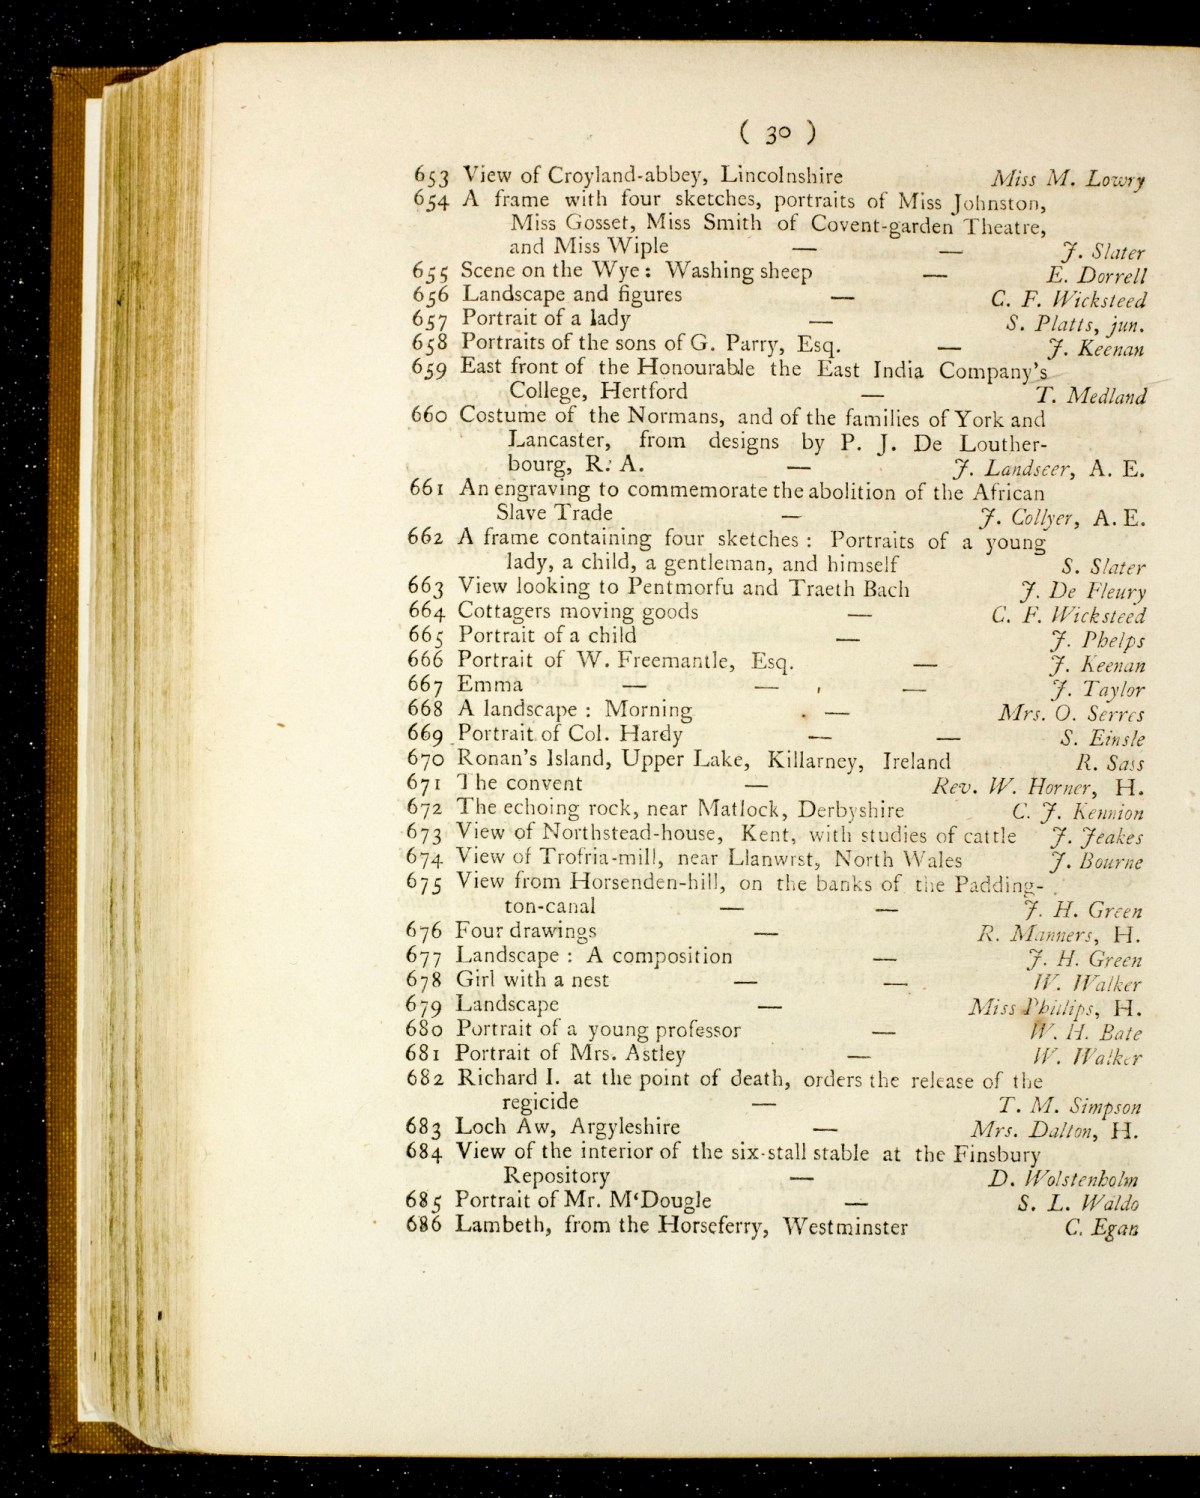 ( 30 )
653 View of Croyland-abbey, Lincolnshire Miss M. Lowry
654 A frame with four sketches, portraits of Miss Johnston,
Miss Gosset, Miss Smith of Covent-garden Theatre,
and Miss Wiple — — J. Slater
655 Scene on the Wye: Washing sheep — E. Dorrell
656 Landscape and figures — C. F. Wicksteed
657 Portrait of a lady — S. Platts, jun.
658 Portraits of the sons of G. Parry, Esq. — J. Keenan
659 East front of the Honourable the East India Company's
College, Hertford — T. Medland
660 Costume of the Normans, and of the families of York and
Lancaster, from designs by P. J. De Louther-
bourg, R. A. — J. Landseer, A. E.
661 An engraving to commemorate the abolition of the African
Slave Trade — J. Collyer, A. E.
662 A frame containing four sketches: Portraits of a young
lady, a child, a gentleman, and himself S. Slater
663 View looking to Pentmorfu and Traeth Bach J. De Fleury
664 Cottagers moving goods — C. F. Wicksteed
665 Portrait of a child — J. Phelps
666 Portrait of W. Freemantle, Esq. — J. Keenan
667 Emma — — — J. Taylor
668 A landscape: Morning — Mrs. O. Serres
669 Portrait of Col. Hardy — — S. Einsle
670 Ronan's Island, Upper Lake, Killarney, Ireland R. Sass
671 The convent — Rev. W. Horner, H.
672 The echoing rock, near Matlock, Derbyshire C. J. Kennion
673 View of Northstead-house, Kent, with studies of cattle J. Jeakes
674 View of Trofria-mill, near Llanwrst, North Wales J. Bourne
675 View from Horsenden-hill, on the banks of the Padding-
ton-canal — — J. H. Green
676 Four drawings — R. Manners, H.
677 Landscape: A composition — J. H. Green
678 Girl with a nest — — W. Walker
679 Landscape — Miss Phillips, H.
680 Portrait of a young professor — W. H. Bate
681 Portrait of Mrs. Astley — W. Walker
682 Richard I. at the point of death, orders the release of the
regicide — T. M. Simpson
683 Loch Aw, Argyleshire — Mrs. Dalton, H.
684 View of the interior of the six-stall stable at the Finsbury
Repository — D. Wolstenholm
685 Portrait of Mr. M‘Dougle — S. L. Waldo
686 Lambeth, from the Horseferry, Westminster C. Egan